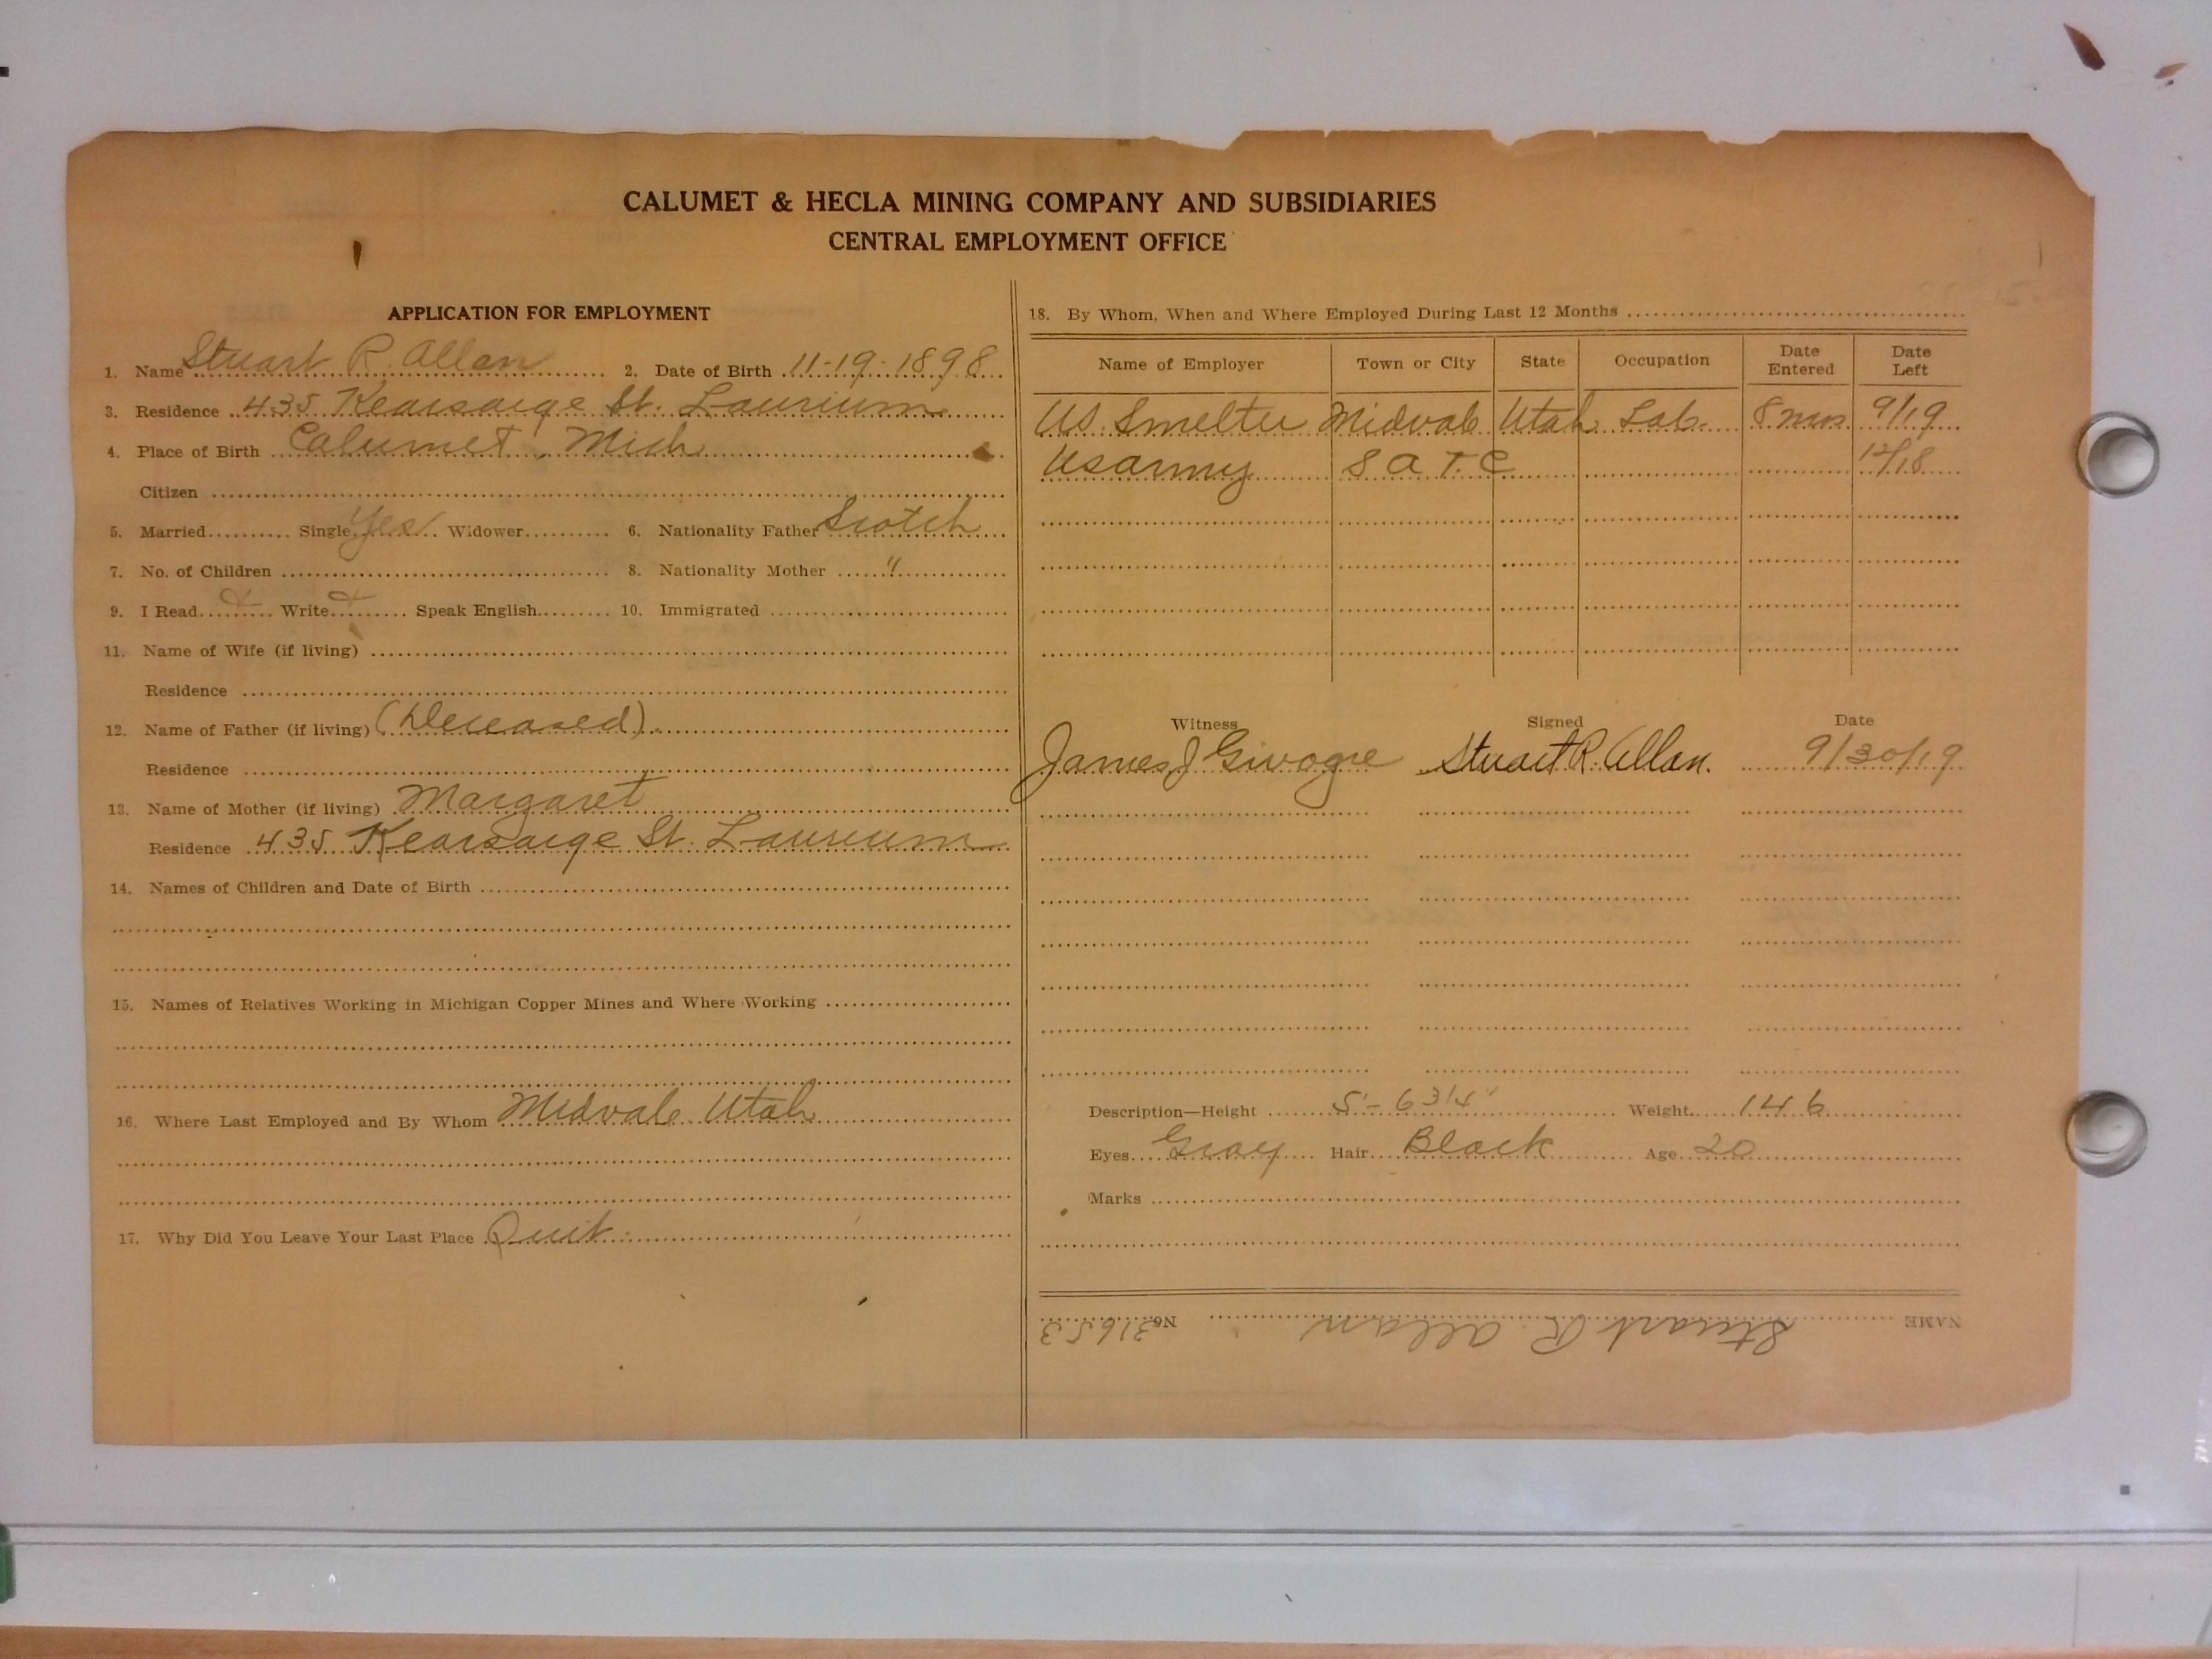 CALUMET & HECLA MINING COMPANY AND SUBSIDIARIES
CENTRAL EMPLOYMENT OFFICE
APPLICATION FOR EMPLOYMENT
1. Name Stuart R. Allan 2. Date of Birth 11-19-1898
3. Residence 435 Kearsarge St. Laurium
4. Place of Birth Calumet, Mich
Citizen
5. Married Single Yes Widower 6. Nationality Father Scotch
7. No. of Children 8. Nationality Mother "
9. I Read x Write x Speak English 10. Immigrated
11. Name of Wife (if living)
Residence
12. Name of Father (if living) (Deceased)
Residence
13. Name of Mother (if living) Margaret
Residence 435 Kearsarge St. Laurium
14. Names of Children and Date of Birth
15. Names of Relatives Working in Michigan Copper Mines and Where Working
16. Where Last Employed and By Whom Midvale Utah
17. Why Did You Leave Your Last Place Quit
18. By Whom, When and Where Employed During Last 12 Months
Name of Employer Town or City State Occupation Date Entered Date Left
US. Smelter Midvale Utah Lab. 8 mos 9/19
US army S A T C 12/18
Witness Signed Date
James J Stuart R. Allan. 9/30/19
Description—Height 5'-6 3/4" Weight 146
Eyes Gray Hair Black Age 20
Marks
NAME Stuart R. Allan No. 31653